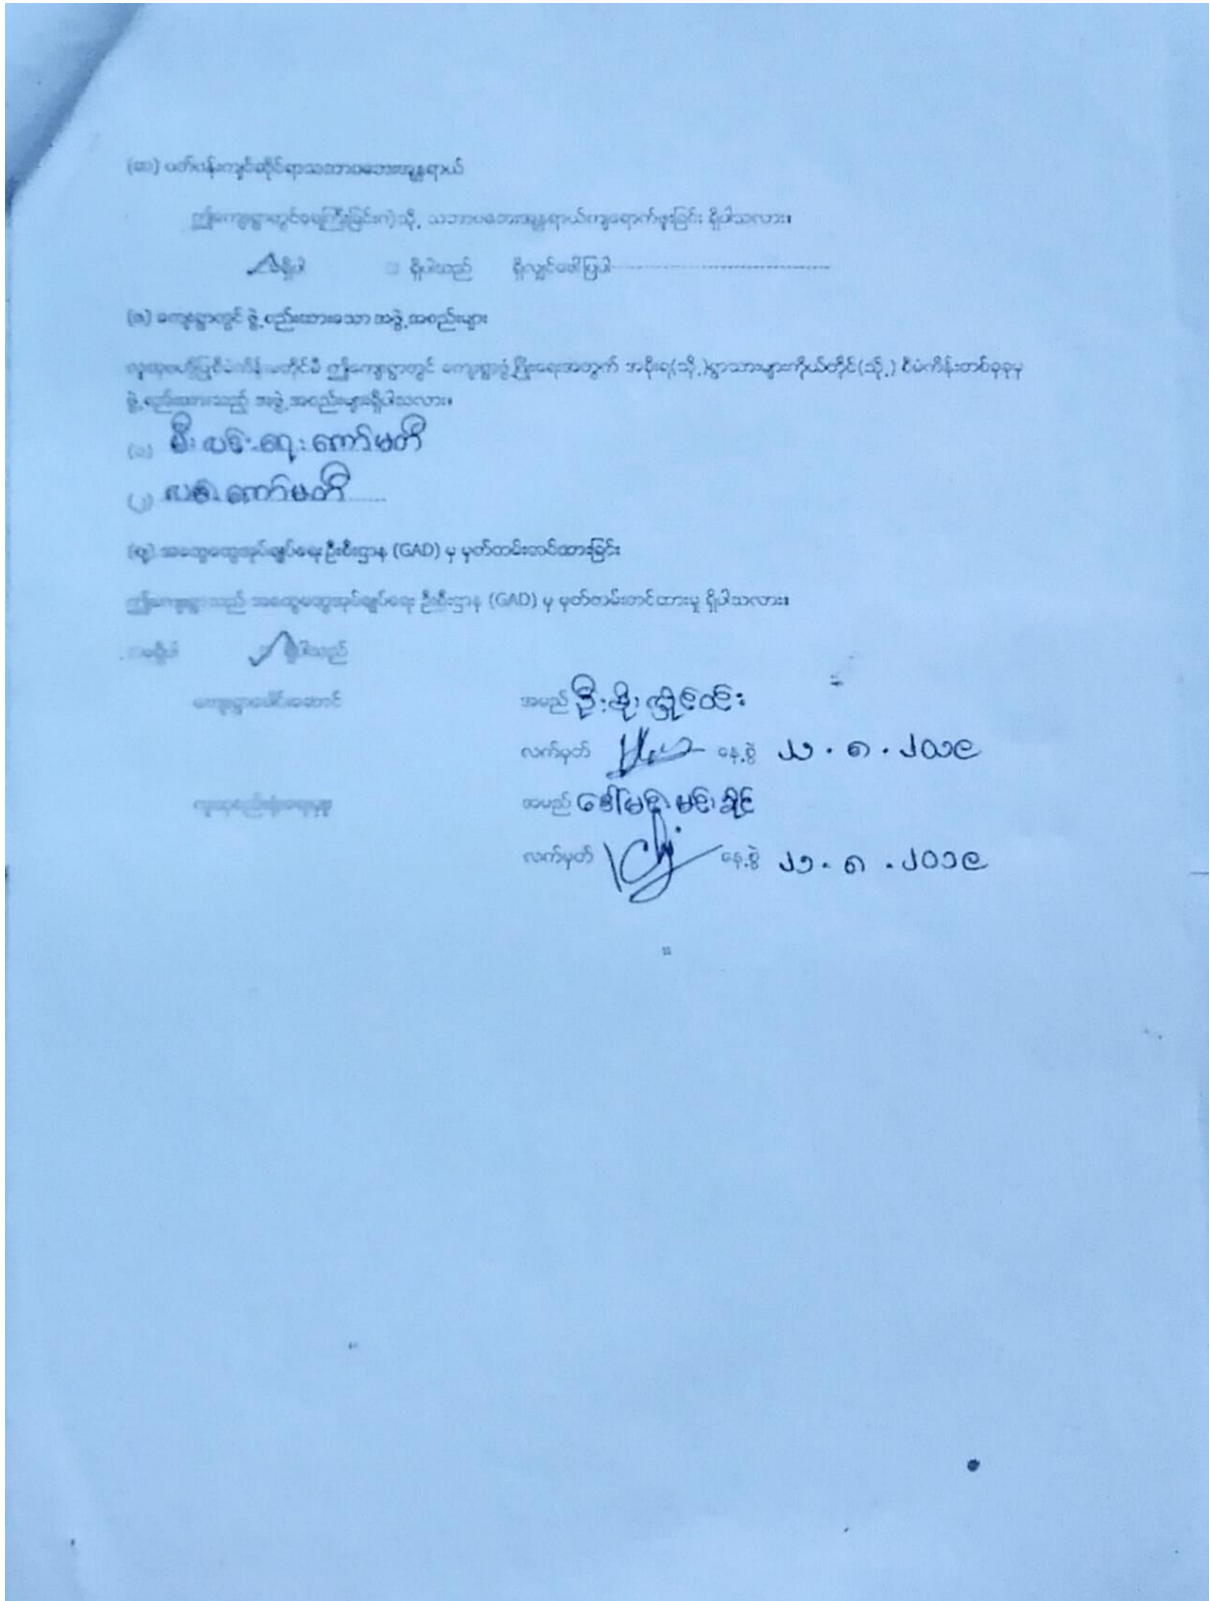 (ဆ) ပတ်ဝန်းကျင်ဆိုင်ရာသဘာဝဘေးအန္တရာယ်
ဤကျေးရွာတွင်ရေကြီးခြင်းကဲ့သို့ သဘာဝဘေးအန္တရာယ်ကျရောက်ဖူးခြင်း ရှိပါသလား။
မရှိပါ ရှိပါသည် ရှိလျှင်ဖော်ပြပါ
(ဇ) ကျေးရွာတွင် ဖွဲ့စည်းထားသော အဖွဲ့အစည်းများ
လူထုဗဟိုပြုစီမံကိန်းမတိုင်မီ ဤကျေးရွာတွင် ကျေးရွာဖွံ့ဖြိုးရေးအတွက် အစိုးရ(သို့)ရွာသားများကိုယ်တိုင်(သို့) စီမံကိန်းတစ်ခုခုမှ
ဖွဲ့စည်းထားသည့် အဖွဲ့အစည်းများရှိပါသလား။
(၁) မီးလင်းရေးကော်မတီ
(၂) ကော်မတီ
(ဈ) အထွေထွေအုပ်ချုပ်ရေးဦးစီးဌာန (GAD) မှ မှတ်တမ်းတင်ထားခြင်း
ဤကျေးရွာသည် အထွေထွေအုပ်ချုပ်ရေး ဦးစီးဌာန (GAD) မှ မှတ်တမ်းတင်ထားမှု ရှိပါသလား။
မရှိပါ ရှိပါသည်
ကျေးရွာခေါင်းဆောင် အမည် ဦး
လက်မှတ် နေ့စွဲ ၂၁.၈.၂၀၁၉
လူထုစည်းရုံးရေးမှူး အမည် ဒေါ်
လက်မှတ် နေ့စွဲ ၂၁.၈.၂၀၁၉